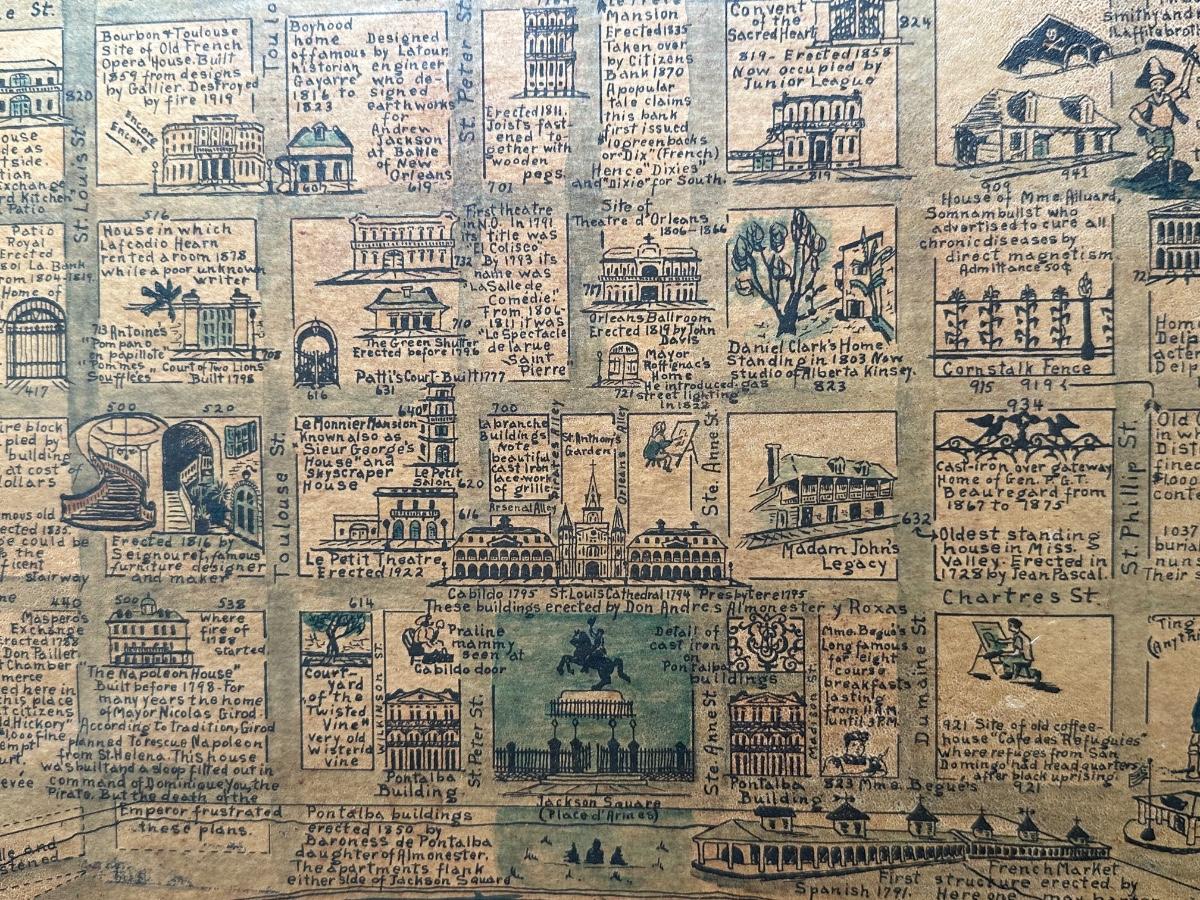 e St.
Bourbon & Toulouse
Site of Old French
Opera House. Built
1859 from designs
by Gallier. Destroyed
by fire 1919
Encore
Encore
Toulo
Boyhood
home
of famous
Historian
Gayarre
1816 to
1823
607
Designed
by Latour
engineer
who de-
signed
earthworks
for
Andrew
Jackson
at Battle
of New
Orleans
619
St. Peter St.
Erected 1811.
Joists fast-
ened to-
gether with
wooden
pegs.
701
Mansion
Erected 1835
Taken over
by Citizens
Bank 1870
A popular
tale claims
this bank
first issued
$10 greenbacks
or "Dix" (French)
Hence "Dixies"
and "Dixie" for South.
Convent
of the
Sacred Heart
824
819 - Erected 1858
Now occupied by
Junior League
819
Smithy and
909
941
820
ouse
de as
tside.
tian
Exchange
rd Kitchen
Patio
St Louis St
Patio
Royal
Erected
801 La. Bank
from 1804-1819.
Home of
417
516
House in which
Lafcadio Hearn
rented a room 1878
while a poor unknown
writer
713 Antoine's
"Pompano
en papillote"
"Pommes
Soufflées
Court of Two Lions
Built 1798
708
732
710
The Green Shutter
Erected before 1796
616
Patti's Court - Built 1777
631
First theatre
in N.O. In 1791
its title was
"El Colisco"
By 1793 its
name was
"La Salle de
Comédie."
From 1806-
1811 it was
"Le Spectacle
de la rue
Saint
Pierre"
Site of
Theatre d'Orleans
1806-1866
717
Orleans Ballroom
Erected 1819 by John
Davis
Mayor
Roffignac's
Home
721
He introduced gas
street lighting
in 1822
Daniel Clark's Home
Standing in 1803 Now
studio of Alberta Kinsey.
823
House of Mme. Alluard,
Somnambulist who
advertised to cure all
chronic diseases by
direct magnetism.
Admittance 50¢
Cornstalk Fence
915
919
72
Hom
Delp
acte
Delp
ire block
pied by
building
at cost of
dollars
mous old
ected 1835
se could be
the
ficent
stairway
500
520
Erected 1816 by
Seignouret, famous
furniture designer
and maker
Toulouse St.
Le Monnier Mansion
Known also as
"Sieur George's
House" and
Skyscraper
House
640
Le Petit
Salon
620
616
Le Petit Theatre
Erected 1922
700
Labranche
Buildings
Note
beautiful
cast iron
lacework
of grille
Pirates Alley
St. Anthony's
Garden
Orleans Alley
Arsenal Alley
Ste. Anne St.
Madam John's
Legacy
632
934
Cast-iron over gateway
Home of Gen. P.G.T.
Beauregard from
1867 to 1875
Oldest standing
house in Miss.
Valley. Erected in
1728 by Jean Pascal.
St. Phillip St.
Old
in w
Dist
fine
"Floo
cont
1037
buria
nuns
Their
Cabildo 1795 St. Louis Cathedral 1794 Presbytere 1795
These buildings erected by Don Andres Almonester y Roxas
Chartres St.
440
Masperos
Exchange
Erected 1788
Don Paillet
of Chamber
merce
ed here in
this place
citizens
ld Hickory"
1,000 fine
empt
urt.
evée
500
538
Where
fire of
1788
started
"The Napoleon House"
Built before 1798 - For
many years the home
of Mayor Nicolas Girod.
According to Tradition, Girod
planned to rescue Napoleon
from St. Helena. This house
was built and a sloop fitted out in
command of Dominique You, the
Pirate. But the death of the
Emperor frustrated
these plans.
614
Court-
yard
of the
"Twisted
Vine"
Very old
Wisteria
Vine
Wilkinson St.
Praline
mammy
seen at
Cabildo door
Pontalba
Building
St Peter St.
Jackson Square
(Place d'Armes)
Detail of
cast iron
on
Pontalba
buildings
Ste Anne St
Pontalba
Building
Madison St.
Mme. Begué's
Long famous
for eight
course
breakfasts
lasting
from 11 A.M.
until 3 P.M.
823 Mme. Begue's
Dumaine St
921 Site of old coffee-
house "Cafe des Refuguies"
where refuges from San
Domingo had Headquarters
after black uprising.
921
"Ting
Pontalba buildings
erected 1850 by
Baroness de Pontalba
daughter of Almonester.
The apartments flank
either side of Jackson Square
French Market
First structure erected by
Spanish 1791.
Here one may